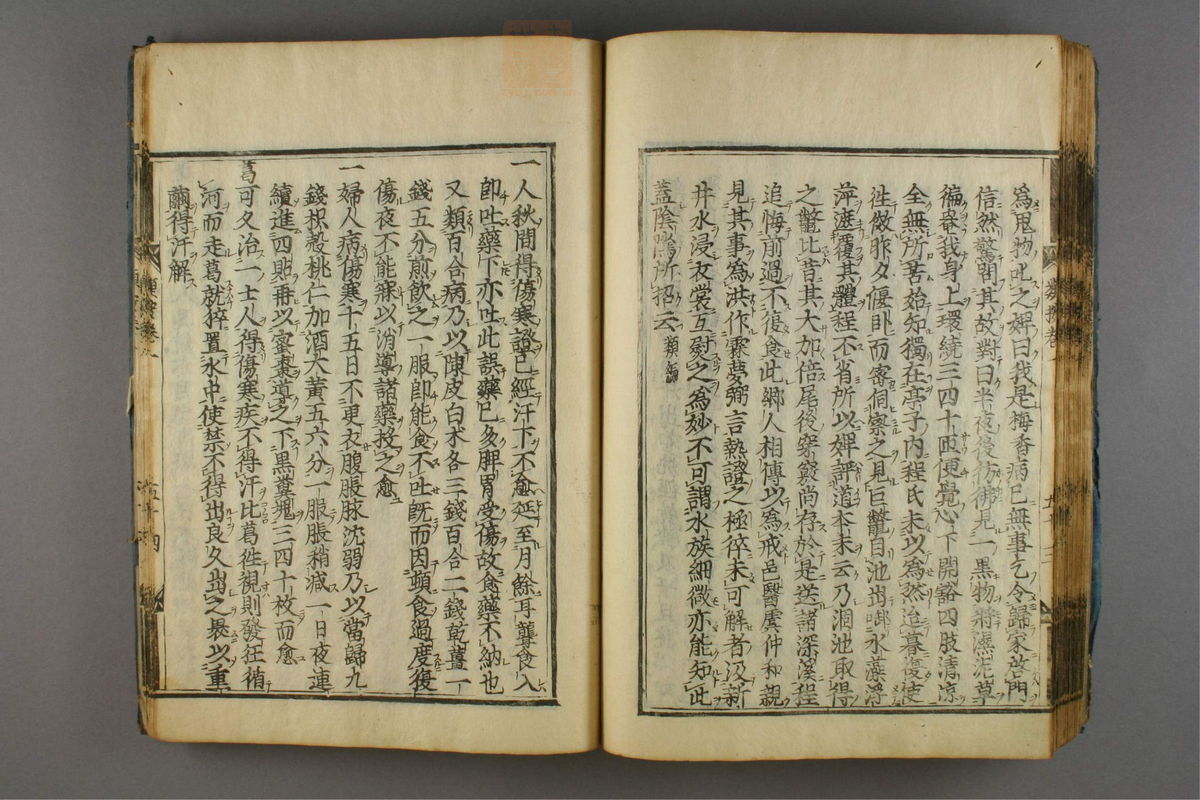 爲鬼物吐之婢曰我是梅香病已無事乞令歸家啓門
信然驚問其故對曰半夜後彷彿見一黒物將濕泥草
徧穿我身上環繞三四十匝便覺心下開豁四肢清凉
全無所苦始知獨在亭子内程氏未以爲然迨暮復使
徃倣昨夕偃臥而密伺察之見巨鼈自池出啣水藻浮
萍遮覆其體程不省所以婢詳道本末云乃涸池取得
之鼈比昔其大加倍尾後穿竅尚存於是送諸深溪程
追悔前過不復食此鄉人相傳以爲戒邑醫虞仲和親
見其事爲洪作霖夢弼言熱證之極猝未可解者汲新
井水浸衣裳互熨之爲妙不可謂水族細微亦能知此
蓋陰隲所招云類編
一人秋間得傷寒證已經汗下不愈延至月餘耳聾食入
卽吐藥下亦吐此誤藥已多脾胃受傷故食藥不納也
又類百合病乃以陳皮白朮各三錢百合二錢乾薑一
錢五分煎飲之一服卽能食不吐既而因頓食過度復
傷夜不能寐以消導諸藥投之愈
一婦人病傷寒十五日不更衣腹脹脉沈弱乃以當歸九
錢枳殻桃仁加酒大黄五六分一服脹稍減一日夜連
續進四貼再以蜜棗導之下黒糞塊三四十枚而愈
葛可久治一士人得傷寒疾不得汗比葛徃視則發狂循
河而走葛就猝置水中使禁不得出良久出之褁以重
繭得汗解